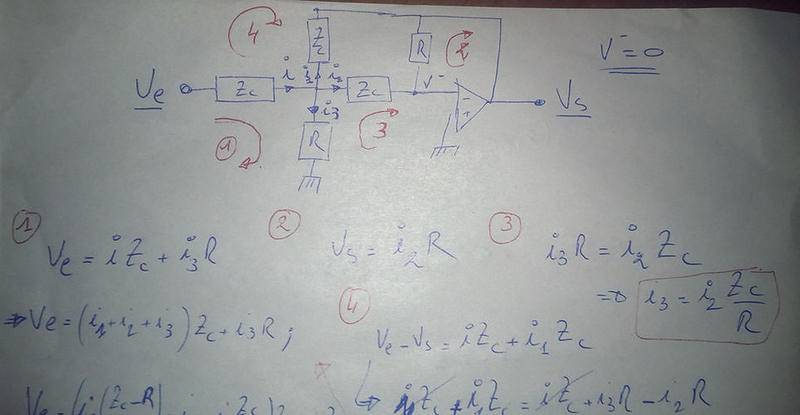 4 Zc R 2 V⁻ = 0
Ve Zc i i₁ i₂ Zc V⁻ - + Vs
1 i₃ R 3
1 Ve = iZc + i₃R
2 Vs = i₂R
3 i₃R = i₂Zc
⇒ i₃ = i₂ Zc/R
⇒ Ve = (i₁+i₂+i₃)Zc + i₃R ;
4 Ve - Vs = iZc + i₁Zc
iZc + i₁Zc = iZc + i₃R - i₂R